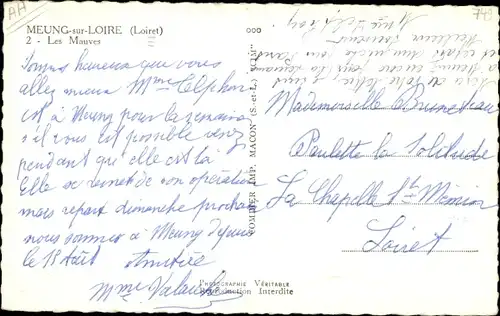 MEUNG-sur-LOIRE (Loiret)
2 - Les Mauves
sommes heureux que vous
allez mieux Mme
est à Meung pour la semaine
s'il vous est possible venez
pendant qu'elle est là
Elle se remet de son opération
mais repart dimanche prochain
nous sommes à Meung depuis
le 15 Août Amitié
Mme
COMBIER IMP. MACON (S.-et-L.) "CIM"
Mademoiselle Bruneteau
Paulette la Solitude
La Chapelle St Mesmin
Loiret
PHOTOGRAPHIE VÉRITABLE
Reproduction Interdite